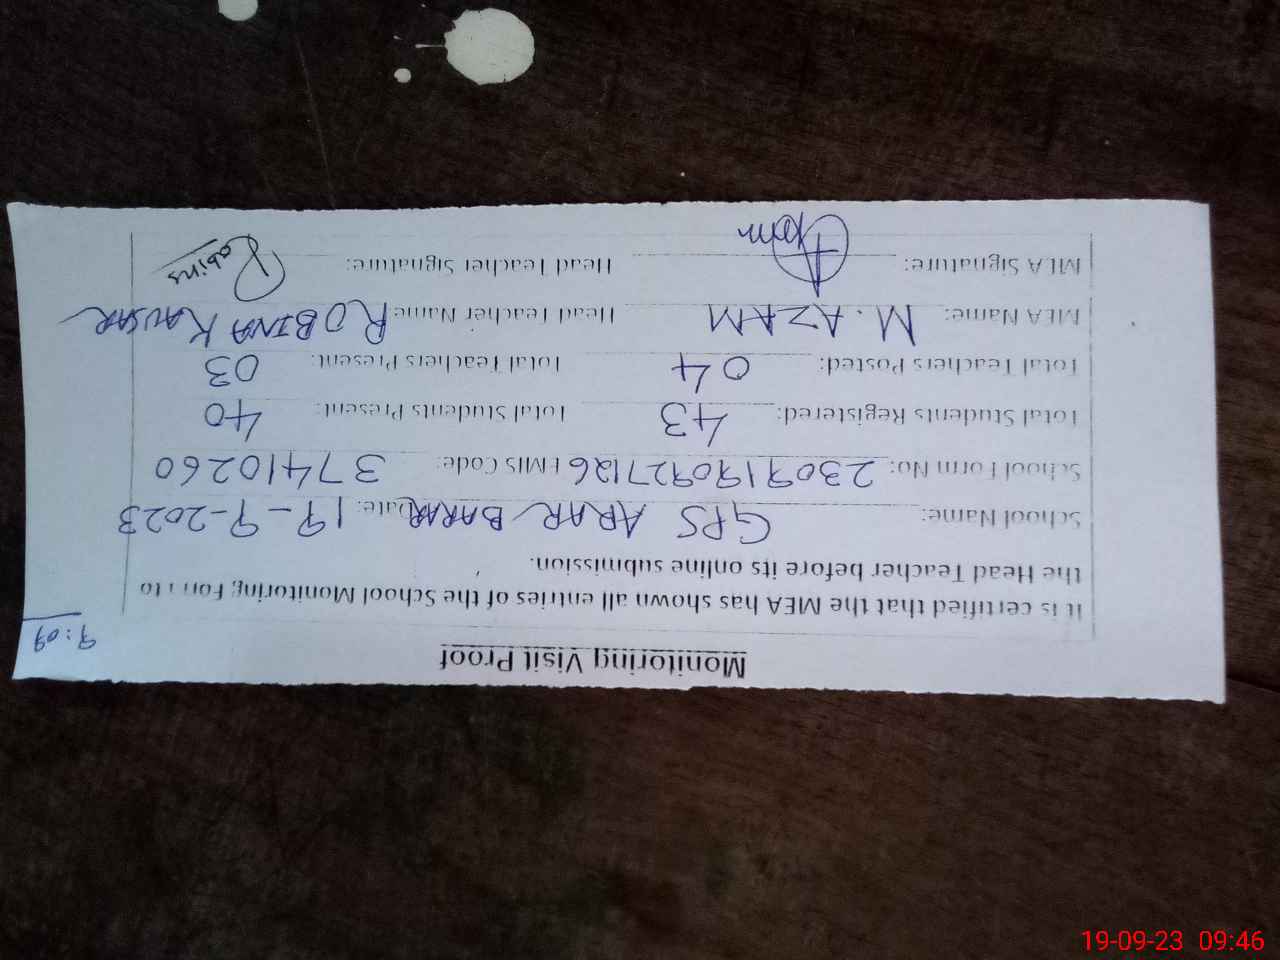 Monitoring Visit Proof
9:09
It is certified that the MEA has shown all entries of the School Monitoring Form to
the Head Teacher before its online submission.
School Name: GPS ARAR BARAR Date: 19-9-2023
School Form No: 2309190927126 EMIS Code: 37410260
Total Students Registered: 43 Total Students Present: 40
Total Teachers Posted: 04 Total Teachers Present: 03
MEA Name: M. AZAM Head Teacher Name ROBINA KAUSAR
MEA Signature: Head Teacher Signature: Robina
19-09-23 09:46